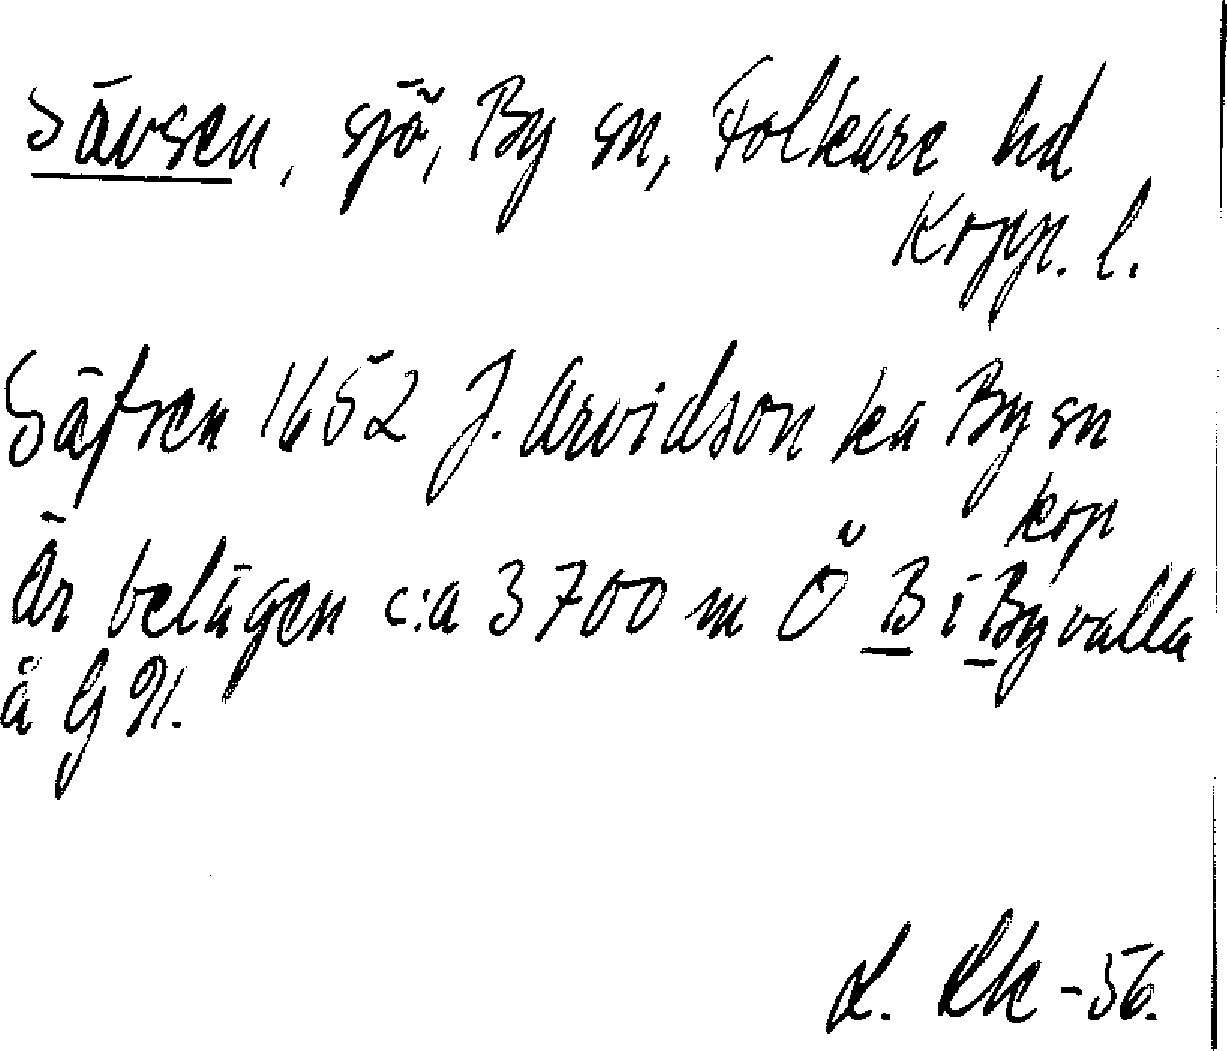 Sävsen, sjö, By sn, Folkare hd
Kopp. l.
Säfsen 1652 J. Arvidson ka By sn
kop
Är belägen c:a 3700 m Ö B i Byvalla
å G 91.
L. -56.